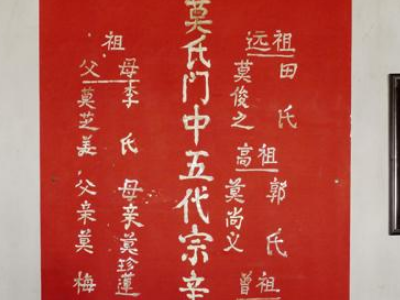 祖田氏 祖郭氏 祖
远莫俊之 高莫尚义 曾
莫氏门中五代宗亲
祖
母李氏 母亲莫珍蓮
父莫芝美 父亲莫梅